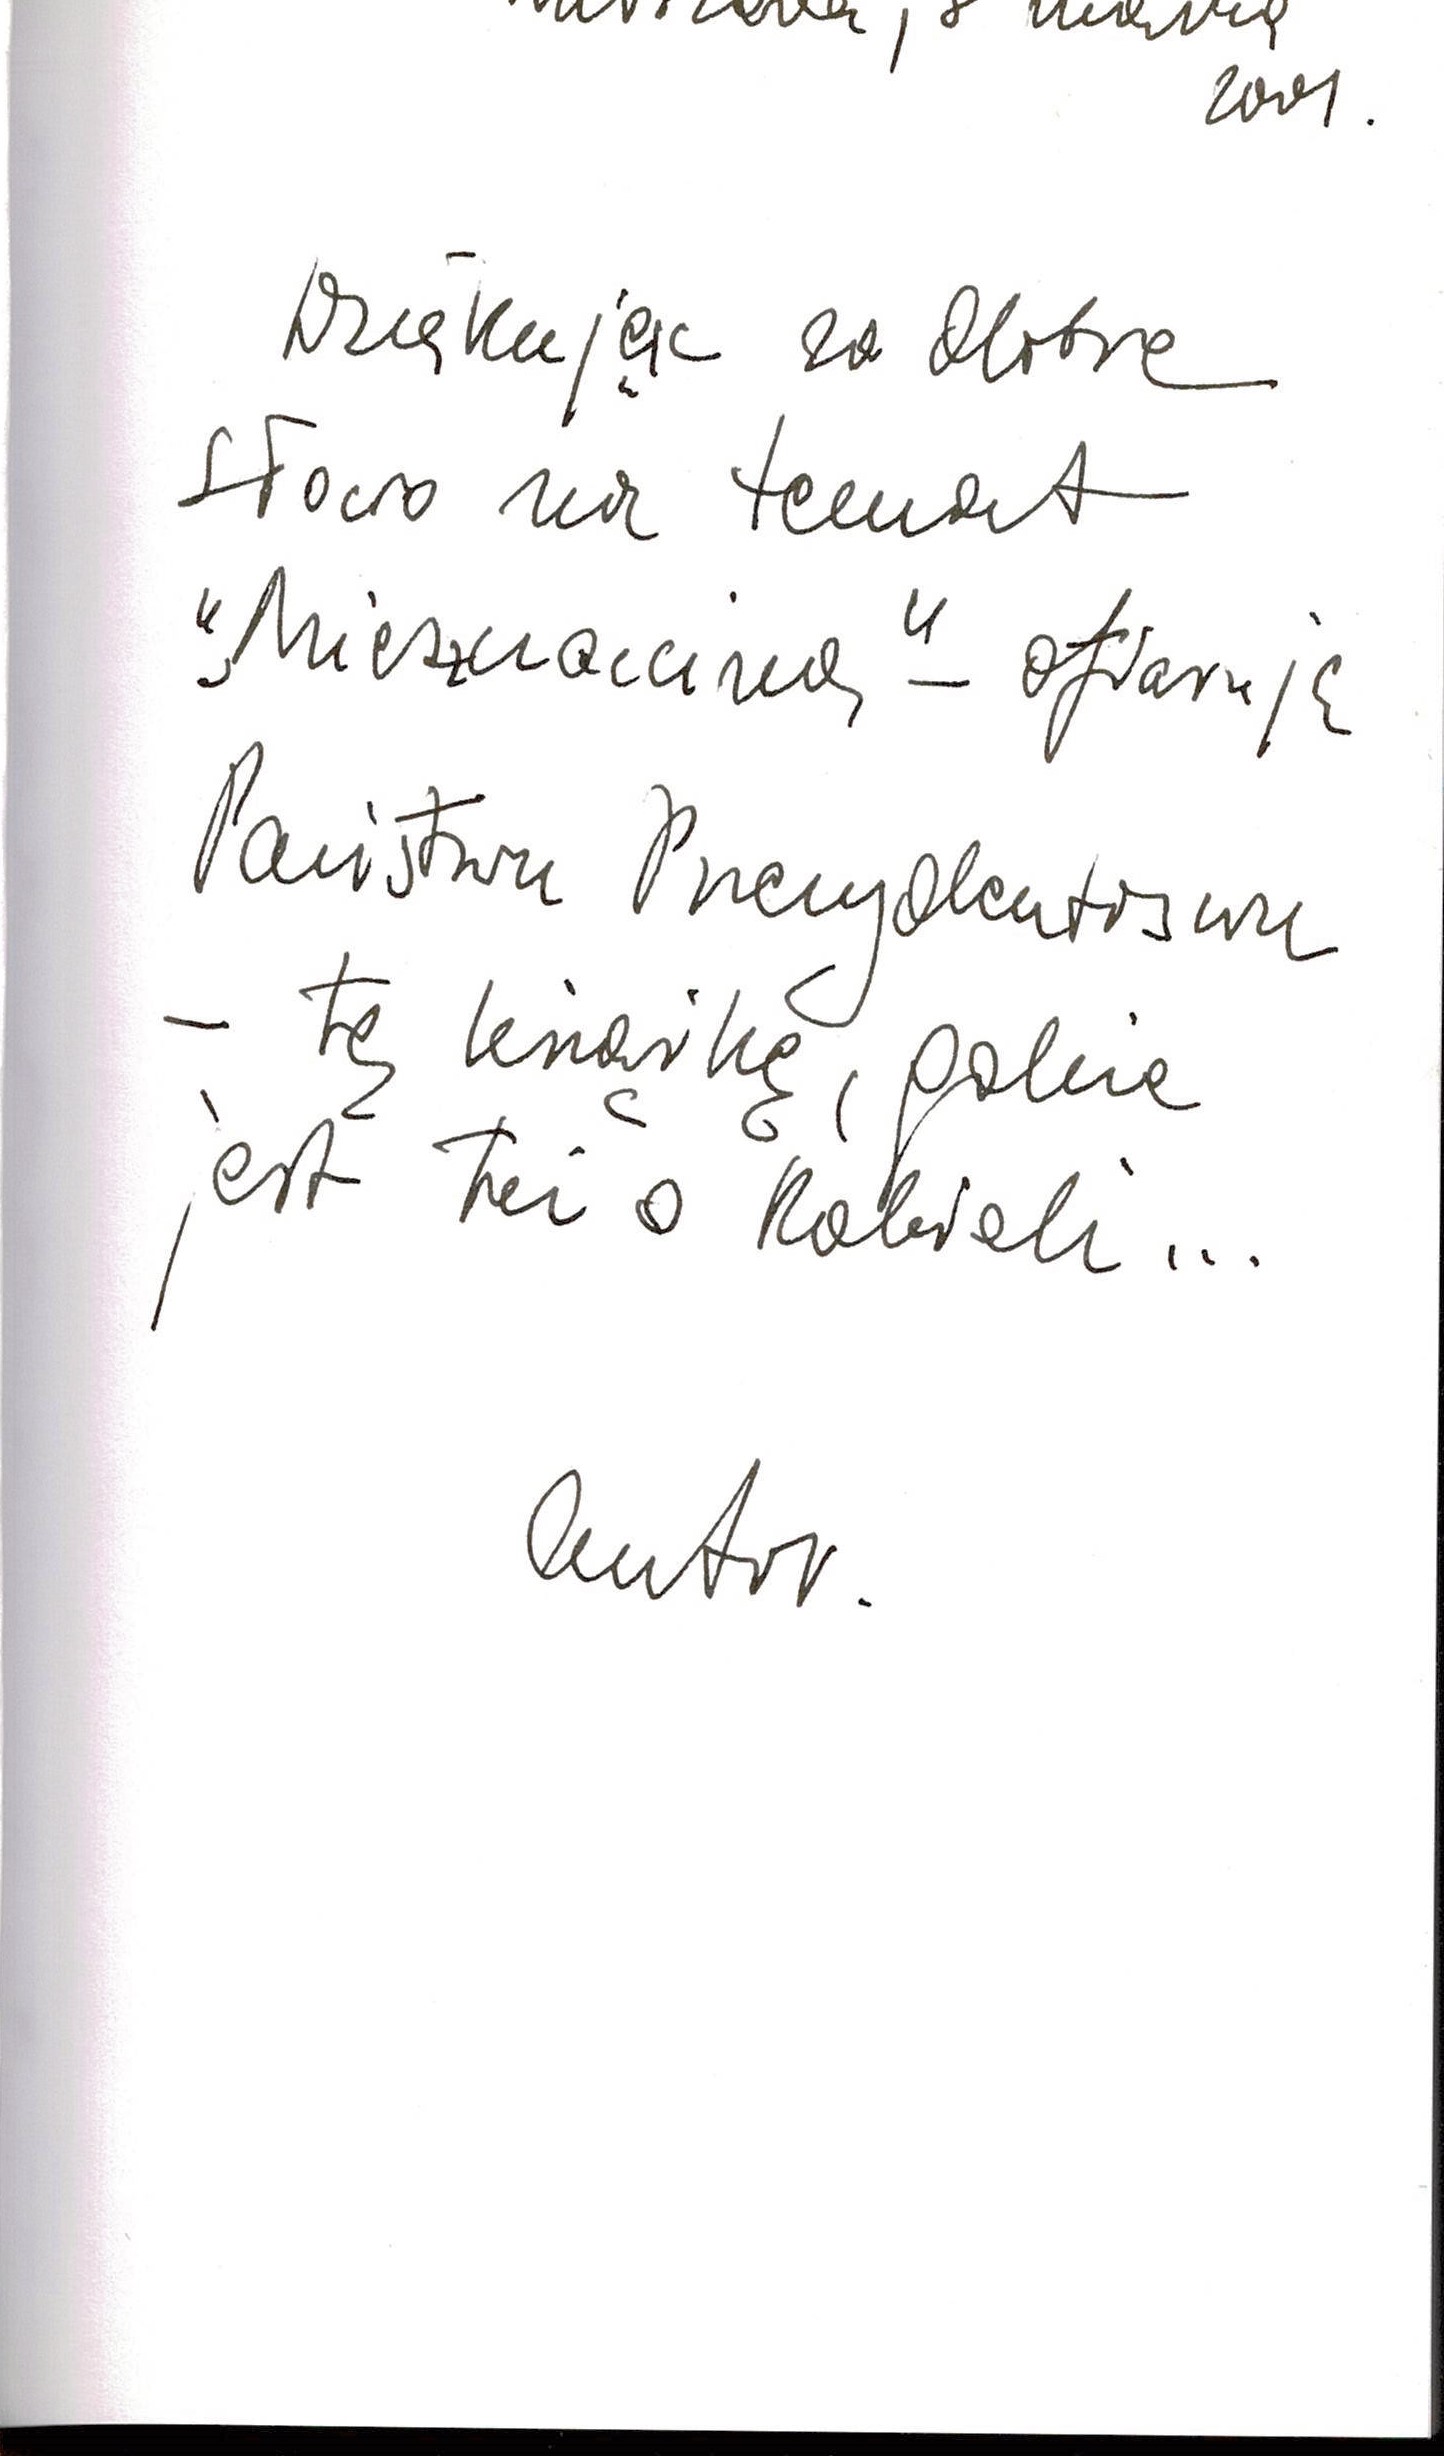 Warszawa, 8 marca
2001.
Dziękując za dobre
słowo na temat
„Mieszczanina" – ofiaruję
Państwu Prezydentostwu
– tę książkę, gdzie
jest też o Kobieli...
autor.